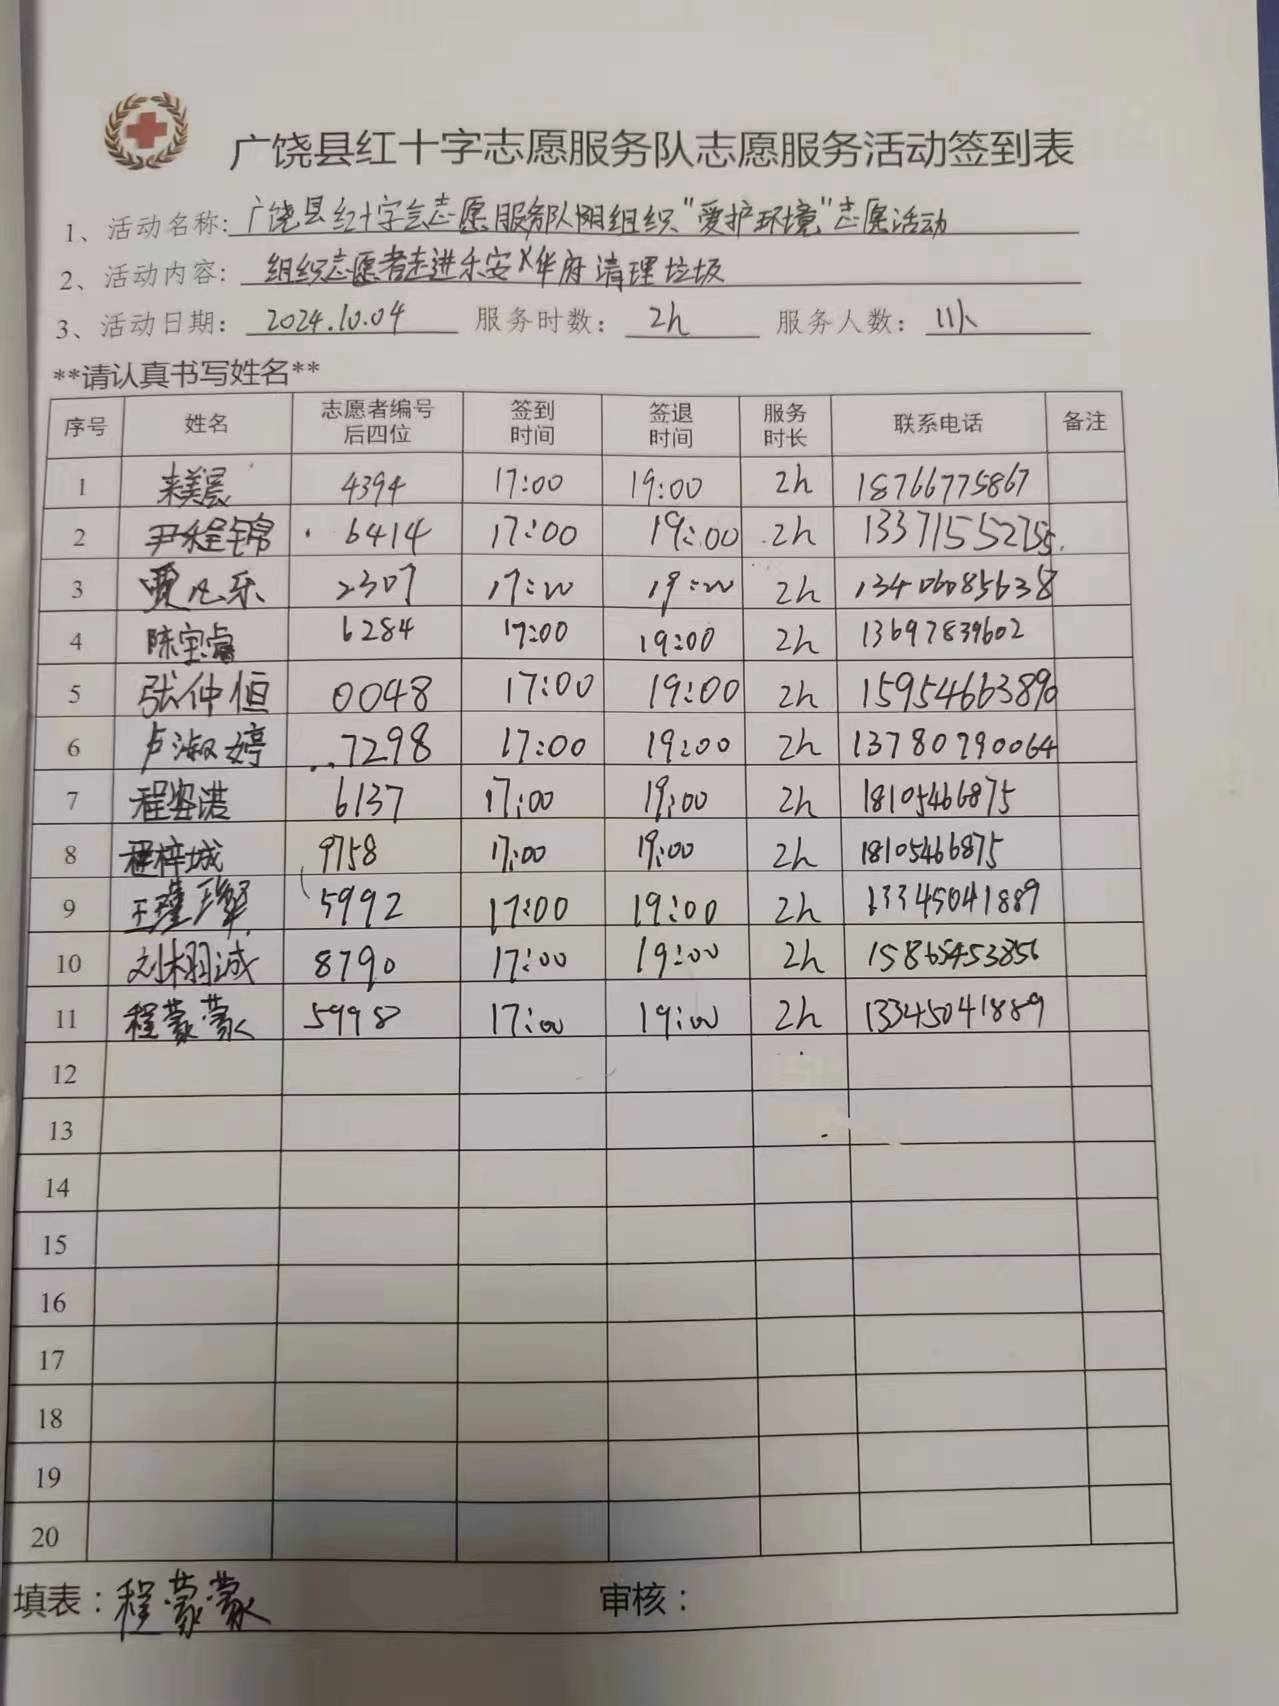 广饶县红十字志愿服务队志愿服务活动签到表
1、活动名称:广饶县红十字会志愿服务队组织"爱护环境"志愿活动
2、活动内容:组织志愿者走进乐安华府清理垃圾
3、活动日期:2024.10.04 服务时数:2h 服务人数:11人
**请认真书写姓名**
序号 姓名 志愿者编号后四位 签到时间 签退时间 服务时长 联系电话 备注
1 来美晨 4394 17:00 19:00 2h 18766775867
2 尹程锦 6414 17:00 19:00 2h 13371552755
3 贾凡乐 2307 17:00 19:00 2h 13406085638
4 陈宝睿 6284 17:00 19:00 2h 13697839602
5 张仲恒 0048 17:00 19:00 2h 15954663890
6 卢淑婷 7298 17:00 19:00 2h 13780790064
7 程姿诺 6137 17:00 19:00 2h 18105466875
8 程梓城 9758 17:00 19:00 2h 18105466875
9 王瑾璨 5992 17:00 19:00 2h 13345041889
10 刘栩诚 8790 17:00 19:00 2h 15865453856
11 程蒙蒙 5998 17:00 19:00 2h 13345041889
12
13
14
15
16
17
18
19
20
填表:程蒙蒙 审核: